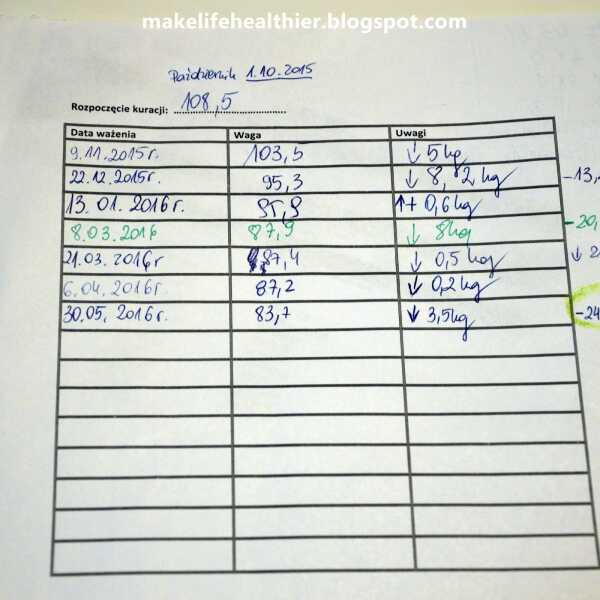 makelifehealthier.blogspot.com
Październik 1.10.2015
Rozpoczęcie kuracji: 108,5
Data ważenia Waga Uwagi
9.11.2015r. 103,5 ↓ 5kg
22.12.2015r. 95,3 ↓ 8,2kg -13,
13.01.2016r. 95,9 ↑+ 0,6kg
8.03.2016 87,9 ↓ 8kg -20,
21.03.2016r 87,4 ↓ 0,5kg ↓ 2
6.04.2016r. 87,2 ↓ 0,2kg
30.05.2016r. 83,7 ↓ 3,5kg -24